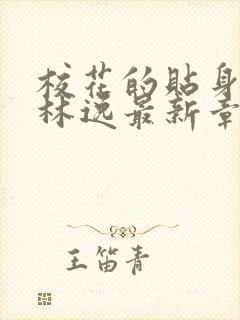 校花的貼身
林逸最新章
王笛青